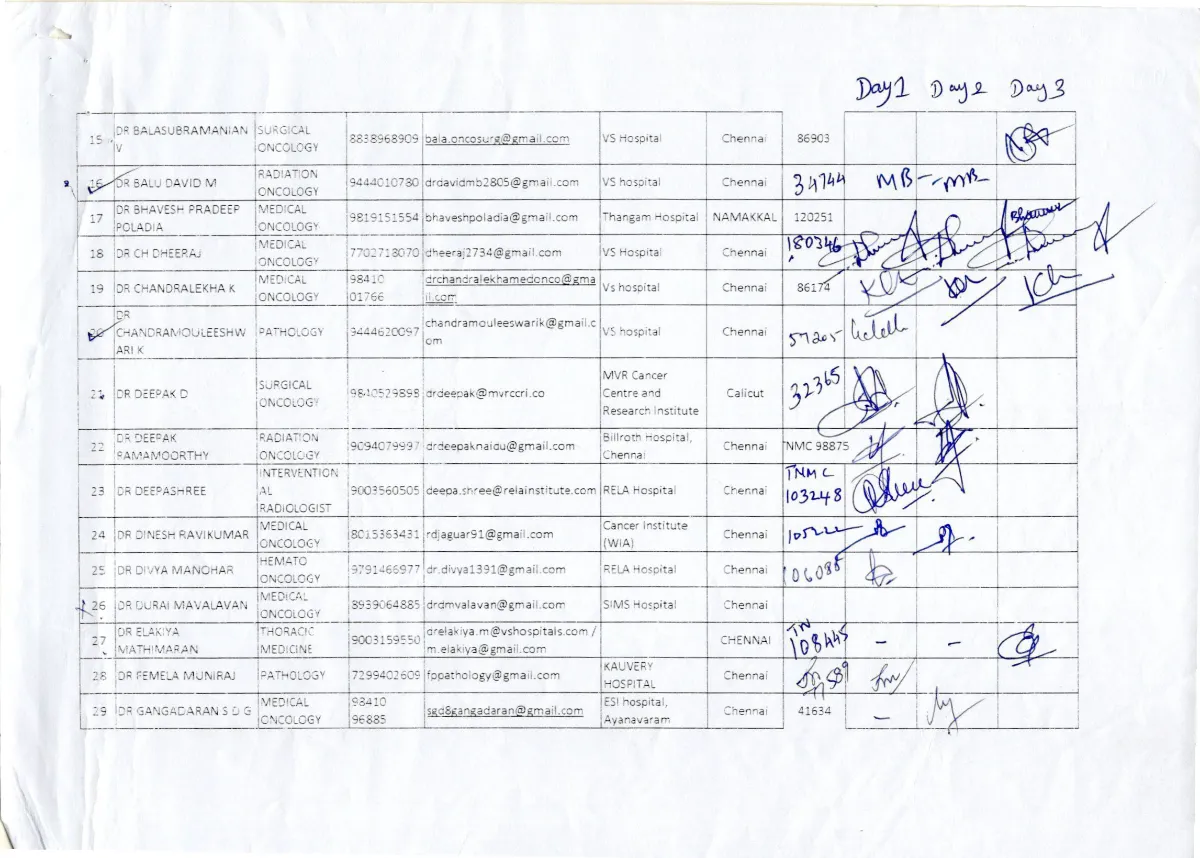 Day1 Day2 Day3
15 DR BALASUBRAMANIAN V SURGICAL ONCOLOGY 8838968909 bala.oncosurg@gmail.com VS Hospital Chennai 86903
16 DR BALU DAVID M RADIATION ONCOLOGY 9444010780 drdavidmb2805@gmail.com VS hospital Chennai 34744 MB MB
17 DR BHAVESH PRADEEP POLADIA MEDICAL ONCOLOGY 9819151554 bhaveshpoladia@gmail.com Thangam Hospital NAMAKKAL 120251
18 DR CH DHEERAJ MEDICAL ONCOLOGY 7702718070 dheeraj2734@gmail.com VS Hospital Chennai 180346
19 DR CHANDRALEKHA K MEDICAL ONCOLOGY 98410 01766 drchandralekhamedonco@gmail.com Vs hospital Chennai 86174
20 DR CHANDRAMOULEESHWARI K PATHOLOGY 9444620097 chandramouleeswarik@gmail.com VS hospital Chennai 57205
21 DR DEEPAK D SURGICAL ONCOLOGY 9840529898 drdeepak@mvrccri.co MVR Cancer Centre and Research Institute Calicut 32365
22 DR DEEPAK RAMAMOORTHY RADIATION ONCOLOGY 9094079997 drdeepaknaidu@gmail.com Billroth Hospital, Chennai Chennai TNMC 98875
23 DR DEEPASHREE INTERVENTIONAL RADIOLOGIST 9003560505 deepa.shree@relainstitute.com RELA Hospital Chennai TNMC 103248
24 DR DINESH RAVIKUMAR MEDICAL ONCOLOGY 8015363431 rdjaguar91@gmail.com Cancer Institute (WIA) Chennai 105222
25 DR DIVYA MANOHAR HEMATO ONCOLOGY 9791466977 dr.divya1391@gmail.com RELA Hospital Chennai 106088
26 DR DURAI MAVALAVAN MEDICAL ONCOLOGY 8939064885 drdmvalavan@gmail.com SIMS Hospital Chennai
27 DR ELAKIYA MATHIMARAN THORACIC MEDICINE 9003159550 drelakiya.m@vshospitals.com / m.elakiya@gmail.com CHENNAI TN 108445 - -
28 DR FEMELA MUNIRAJ PATHOLOGY 7299402609 fppathology@gmail.com KAUVERY HOSPITAL Chennai
29 DR GANGADARAN S D G MEDICAL ONCOLOGY 98410 96885 sgd8gangadaran@gmail.com ESI hospital, Ayanavaram Chennai 41634 -